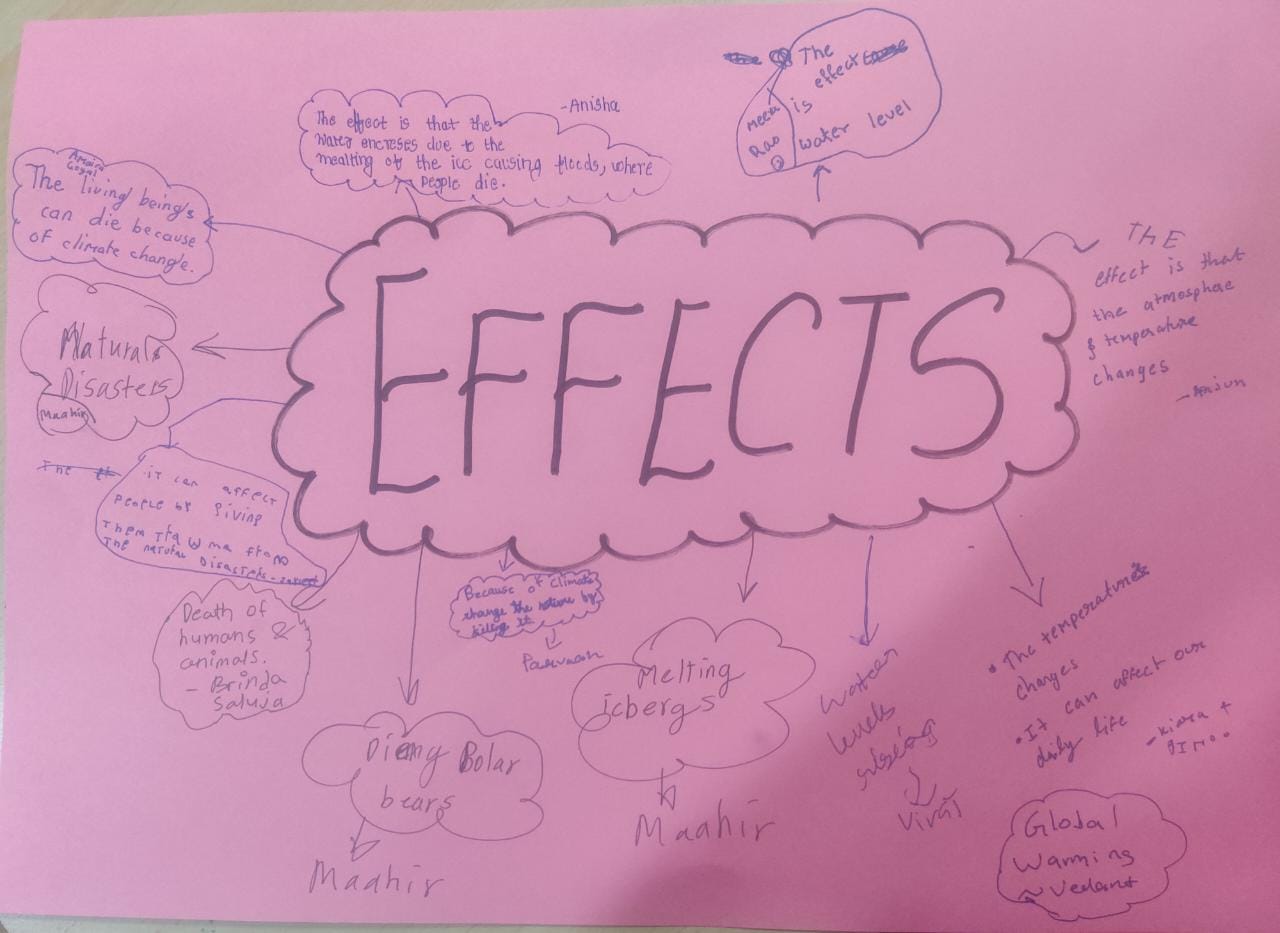 EFFECTS
The
effect
is
water level
Meera
Rao
-Anisha
The effect is that the
water encreses due to the
mealting of the ice causing floods, where
people die.
Amaira
Goyal
The living being's
can die because
of climate change.
Natural
Disasters
Maahir
The
it can affect
people by giving
them
the natural Disasters -
Death of
humans &
animals.
- Brinda
Saluja
Dieing Polar
bears
Maahir
Because of climate
change the nature by
killing it
Melting
icbergs
Maahir
water
levels
rising
Viral
THE
effect is that
the atmosphere
& temperature
changes
- Arjun
• The temperature
changes
• It can affect our
daily life
- kiara +
Global
Warming
~ Vedant